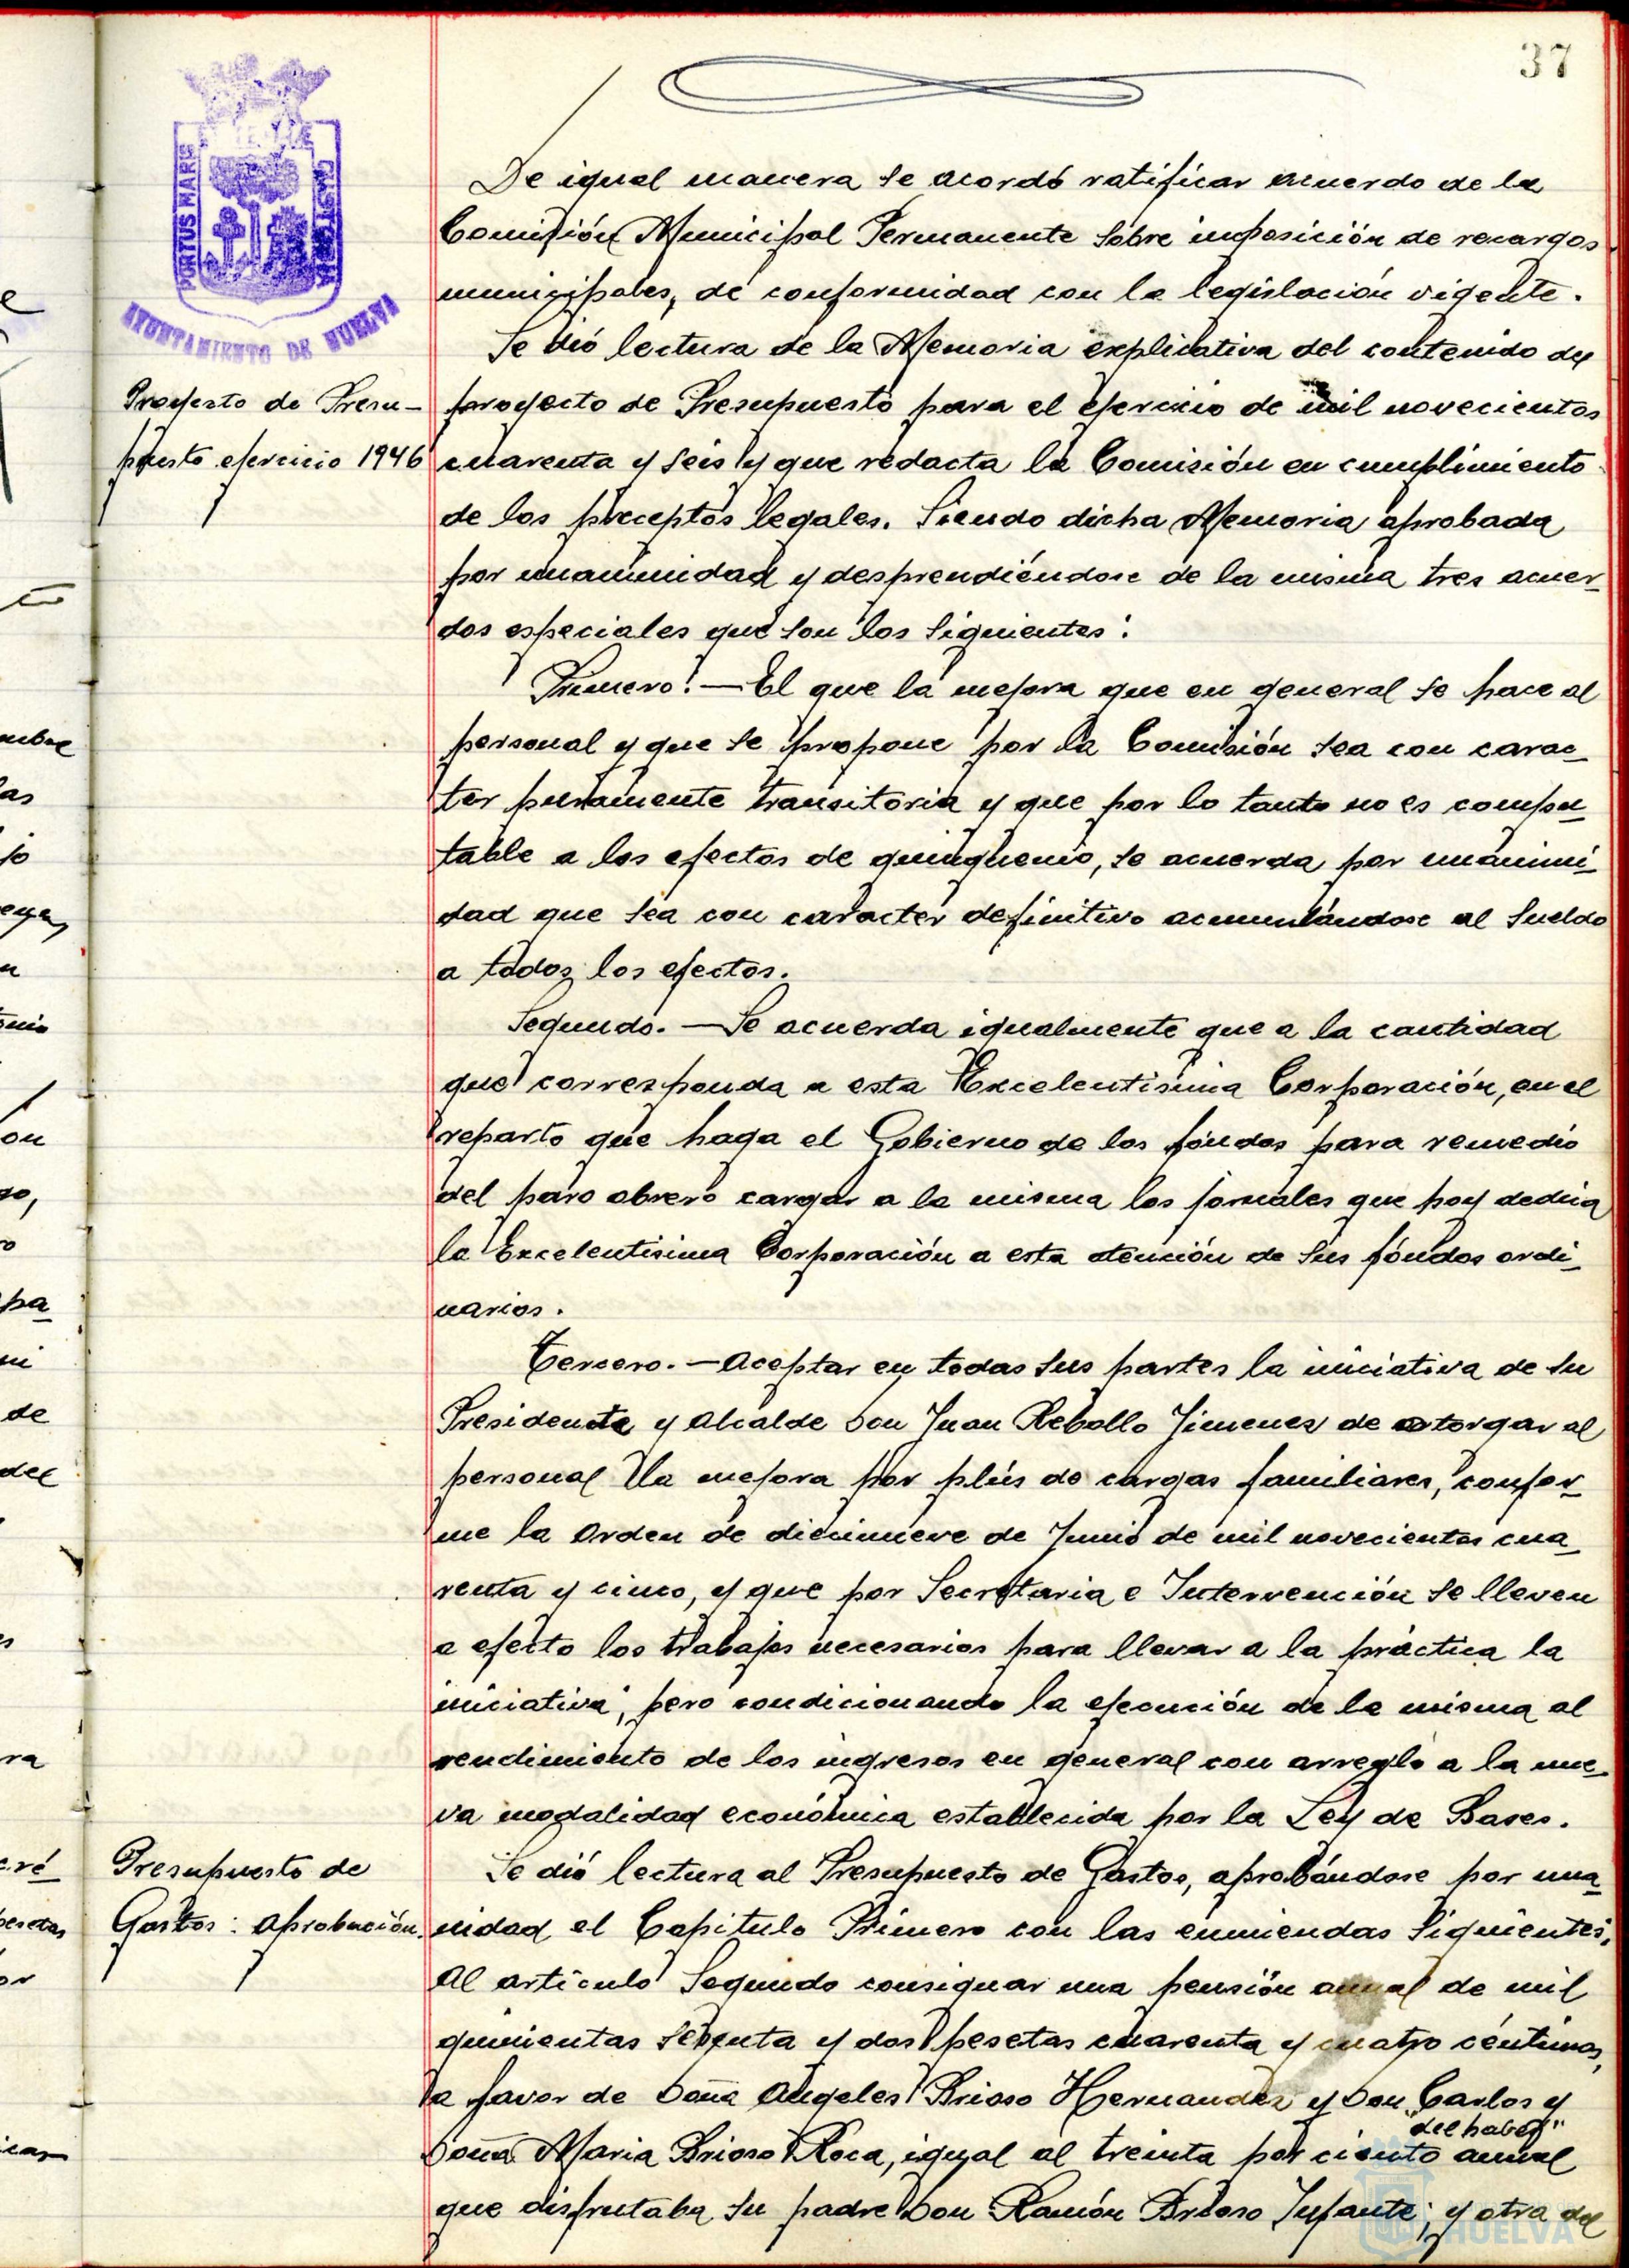 37
PORTUS MARIS
CUSTODIA
AYUNTAMIENTO DE HUELVA
De igual manera se acordó ratificar acuerdo de la
Comisión Municipal Permanente sobre imposición de recargos
municipales, de conformidad con la legislación vigente.
Se dió lectura de la Memoria explicativa del contenido del
Proyecto de Presu-
puesto ejercicio 1946
proyecto de Presupuesto para el ejercicio de mil novecientos
cuarenta y seis y que redacta la Comisión en cumplimiento
de los preceptos legales. Siendo dicha Memoria aprobada
por unanimidad y desprendiéndose de la misma tres acuer-
dos especiales que son los siguientes:
Primero.—El que la mejora que en general se hace al
personal y que se propone por la Comisión sea con carac-
ter puramente transitoria y que por lo tanto no es compu-
table a los efectos de quinquenio, se acuerda por unánimi-
dad que sea con caracter definitivo acumulándose al sueldo
a todos los efectos.
Segundo.—Se acuerda igualmente que a la cantidad
que corresponda a esta Excelentisima Corporación, en el
reparto que haga el Gobierno de los fóndos para remedio
del paro obrero cargar a la misma los jornales que hoy dedica
la Excelentisima Corporación a esta atención de sus fóndos ordi-
narios.
Tercero.—Aceptar en todas sus partes la iniciativa de su
Presidente y Alcalde Don Juan Rebollo Jimenez de otorgar al
personal la mejora por plús de cargas familiares, confor-
me la Orden de diecinueve de Junio de mil novecientos cua-
renta y cinco, y que por Secretaria e Intervención se lleven
a efecto los trabajos necesarios para llevar a la práctica la
iniciativa, pero condicionando la ejecución de la misma al
rendimiento de los ingresos en general con arreglo a la nue-
va modalidad económica establecida por la Ley de Bases.
Presupuesto de
Gastos: aprobación.
Se dió lectura al Presupuesto de Gastos, aprobándose por una-
nidad el Capitulo Primero con las enmiendas siguientes.
Al artículo Segundo consignar una pensión anual de mil
quinientas setenta y dos pesetas cuarenta y cuatro céntimos,
a favor de Doña Angeles Brioso Hernandez y Don Carlos y
"del haber"
Doña Maria Brioso Roca, igual al treinta por ciento anual
que disfrutaba su padre Don Ramón Brioso Infante; y otra del
HUELVA